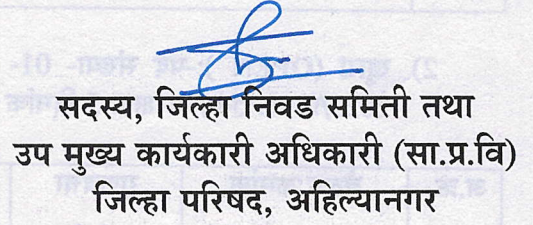 सदस्य, जिल्हा निवड समिती तथा
उप मुख्य कार्यकारी अधिकारी (सा.प्र.वि)
जिल्हा परिषद, अहिल्यानगर